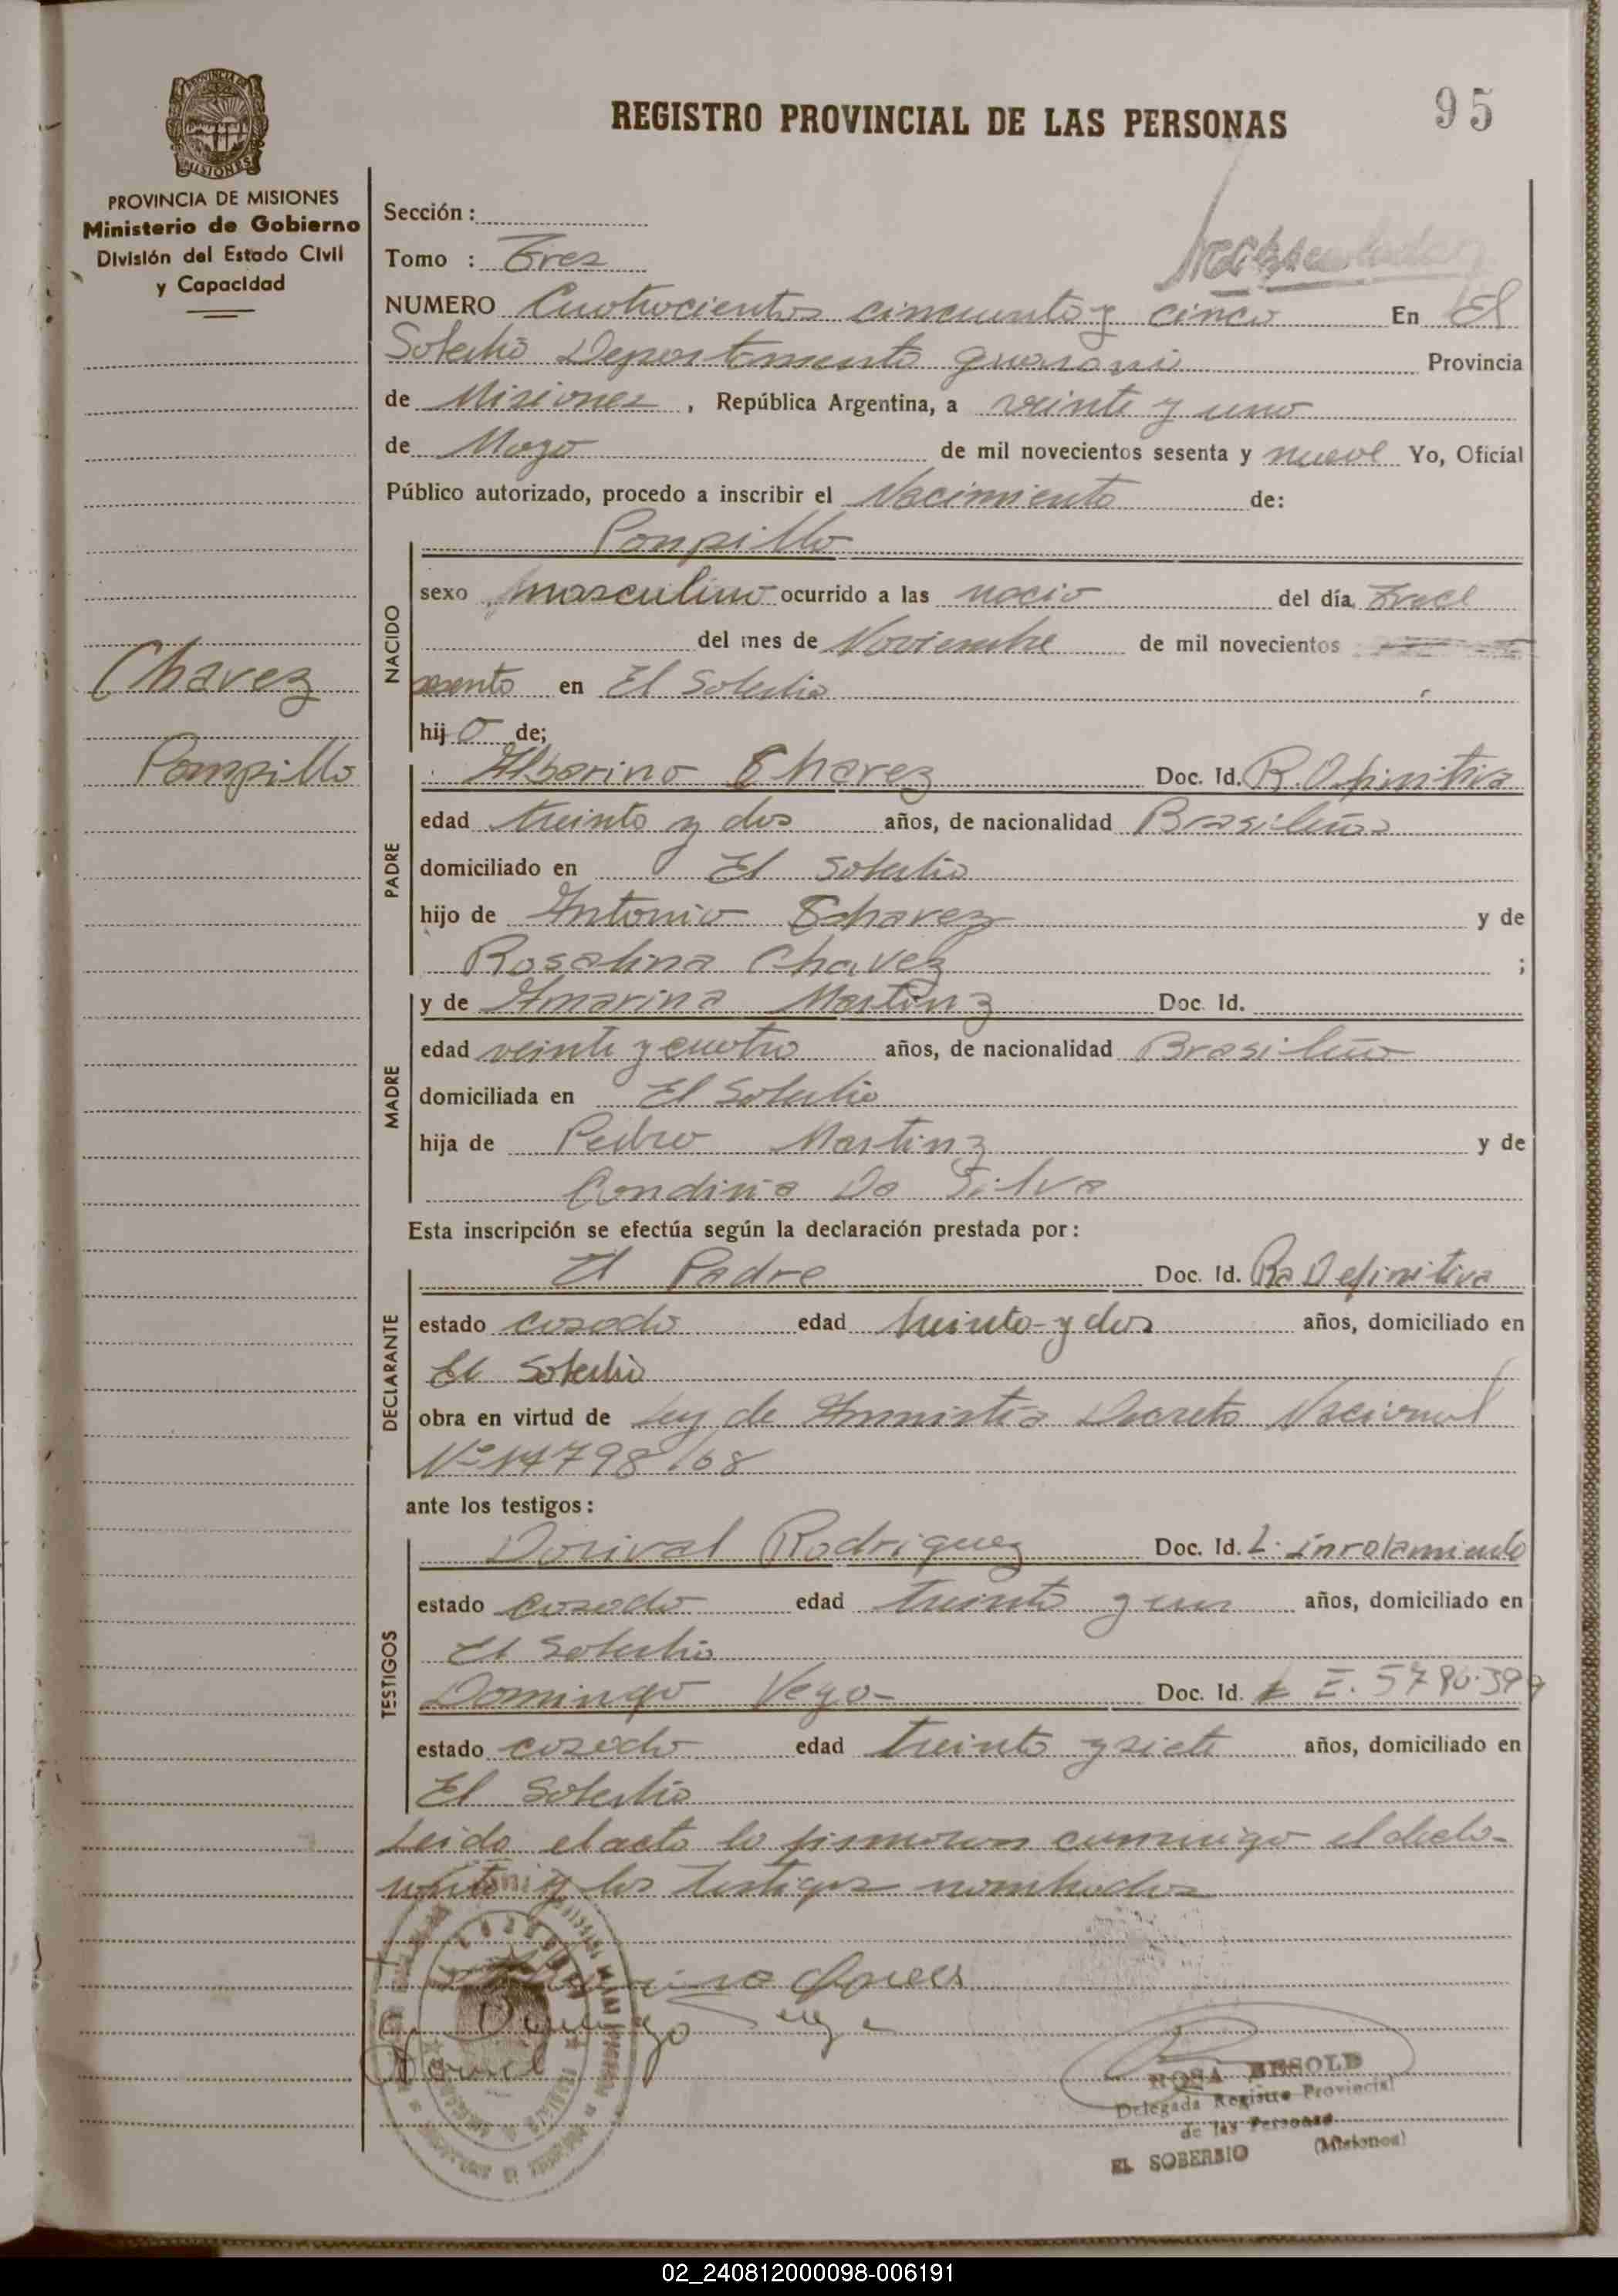 95
REGISTRO PROVINCIAL DE LAS PERSONAS
PROVINCIA DE MISIONES
Ministerio de Gobierno
División del Estado Civil
y Capacidad
Chavez
Pompillo
Sección :
Tomo : Tres
NUMERO Cuatrocientos cincuenta y cinco En El
Soberbio Departamento Guarani Provincia
de Misiones , República Argentina, a veinte y uno
de Mayo de mil novecientos sesenta y nueve Yo, Oficial
Público autorizado, procedo a inscribir el Nacimiento de:
Pompillo
NACIDO
sexo masculino ocurrido a las nacio del día Trece
del mes de Noviembre de mil novecientos
sesenta en El Soberbio
hijo de;
PADRE
Albarino Chavez Doc. Id. R. Definitiva
edad treinta y dos años, de nacionalidad Brasileña
domiciliado en El Soberbio
hijo de Antonio Chavez y de
Rosalina Chavez ;
MADRE
y de Amarina Martinz Doc. Id.
edad veinte y cuatro años, de nacionalidad Brasileña
domiciliada en El Soberbio
hija de Pedro Martinz y de
Da Silva
Esta inscripción se efectúa según la declaración prestada por :
DECLARANTE
El Padre Doc. Id. Ra Definitiva
estado casado edad treinta y dos años, domiciliado en
El Soberbio
obra en virtud de Ley de Amnistia Decreto Nacional
Nº 14798/68
ante los testigos :
TESTIGOS
Dorival Rodriguez Doc. Id. L. inrolamiento
estado casado edad treinta y un años, domiciliado en
El Soberbio
Domingo Vega Doc. Id. 
estado casado edad treinta y siete años, domiciliado en
El Soberbio
Leido el acto lo firmaron conmigo el decla-
rante y los testigos nombrados
Domingo
ROSA BESOLD
Delegada Registro Provincial
de las Personas
EL SOBERBIO (Misiones)
02_240812000098-006191